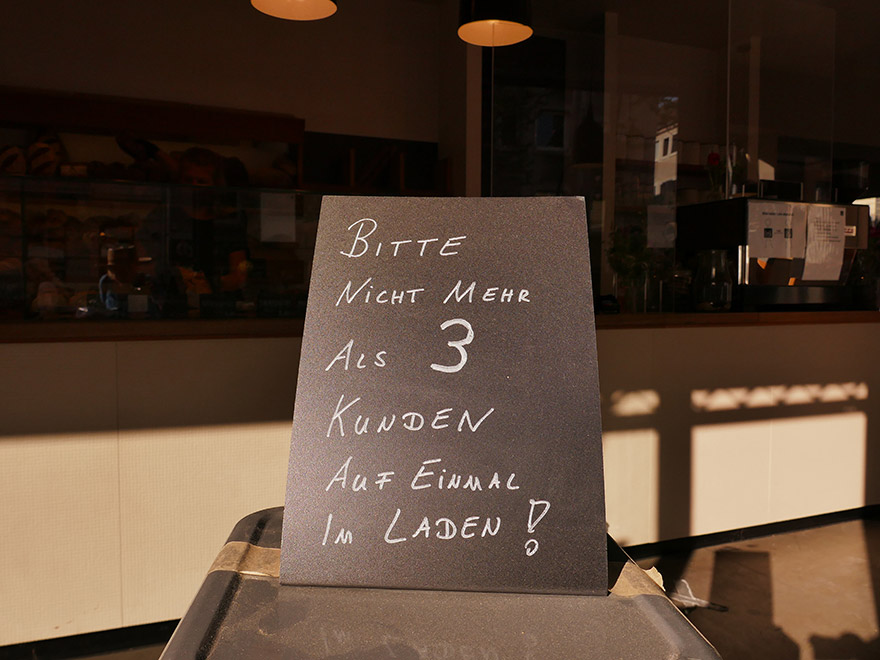 Bitte
Nicht Mehr
Als 3
Kunden
Auf Einmal
Im Laden!